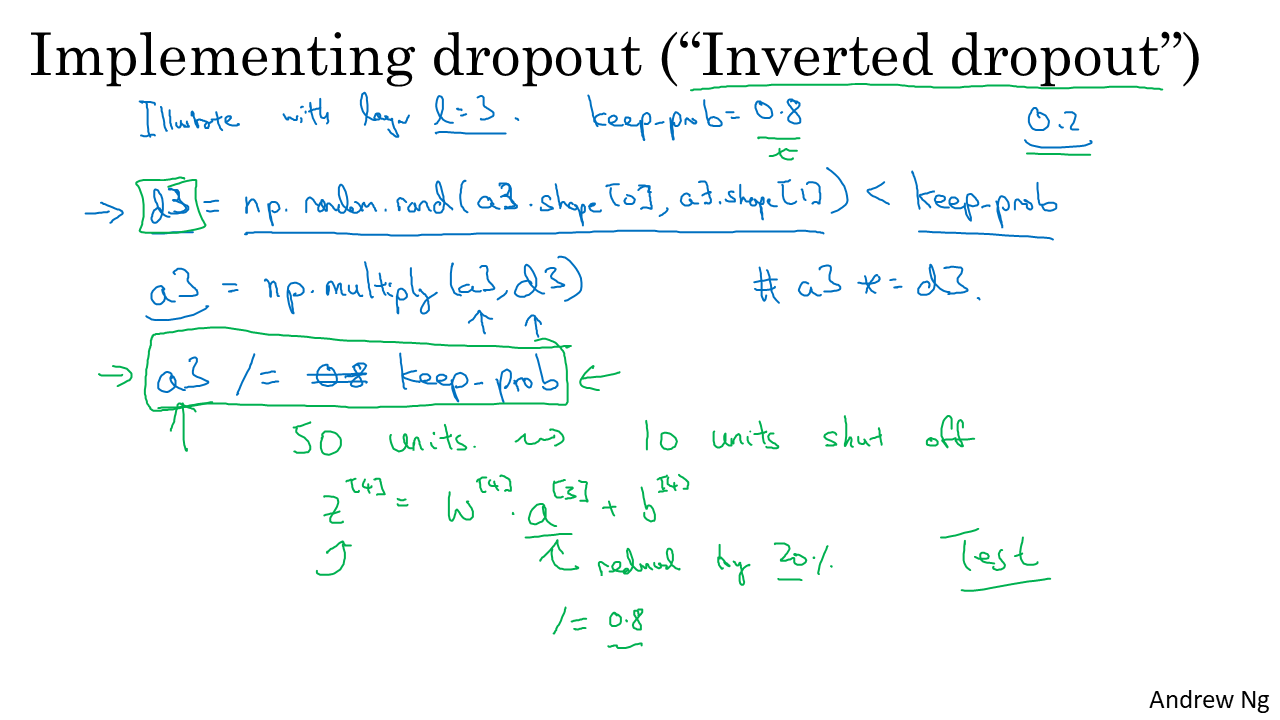 Implementing dropout (“Inverted dropout”)
Illustrate with layer l=3. keep-prob= 0.8 0.2
→ d3 = np.random.rand(a3.shape[0], a3.shape[1]) < keep-prob
a3 = np.multiply(a3, d3) # a3 *= d3.
→ a3 /= 0.8 keep-prob ←
50 units. ⇝ 10 units shut off
z[4] = W[4] · a[3] + b[4]
reduced by 20% Test
/= 0.8
Andrew Ng